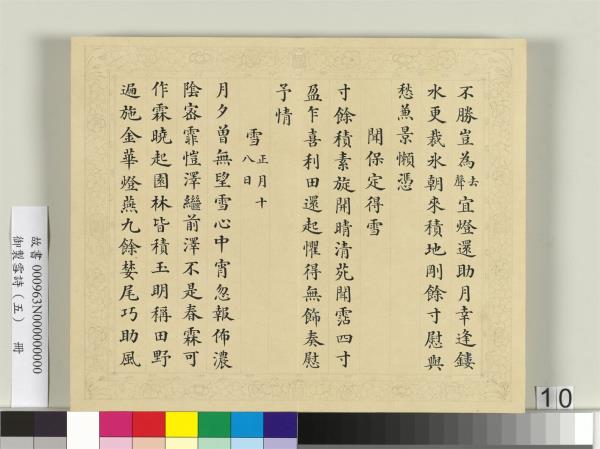 不勝豈為去聲宜燈還助月幸逢鏤
水更裁氷朝來積地剛餘寸慰與
愁兼景懶憑
聞保定得雪
寸餘積素旋開晴清苑聞霑四寸
盈乍喜利田還起懼得無飾奏慰
予情
雪正月十八日
月夕曽無望雪心中宵忽報佈濃
陰宻霏愷澤繼前澤不是春霖可
作霖曉起園林皆積玉明稱田野
遍施金華燈燕九餘婪尾巧助風
故書 000963N000000000
御製雪詩(五) 冊
10